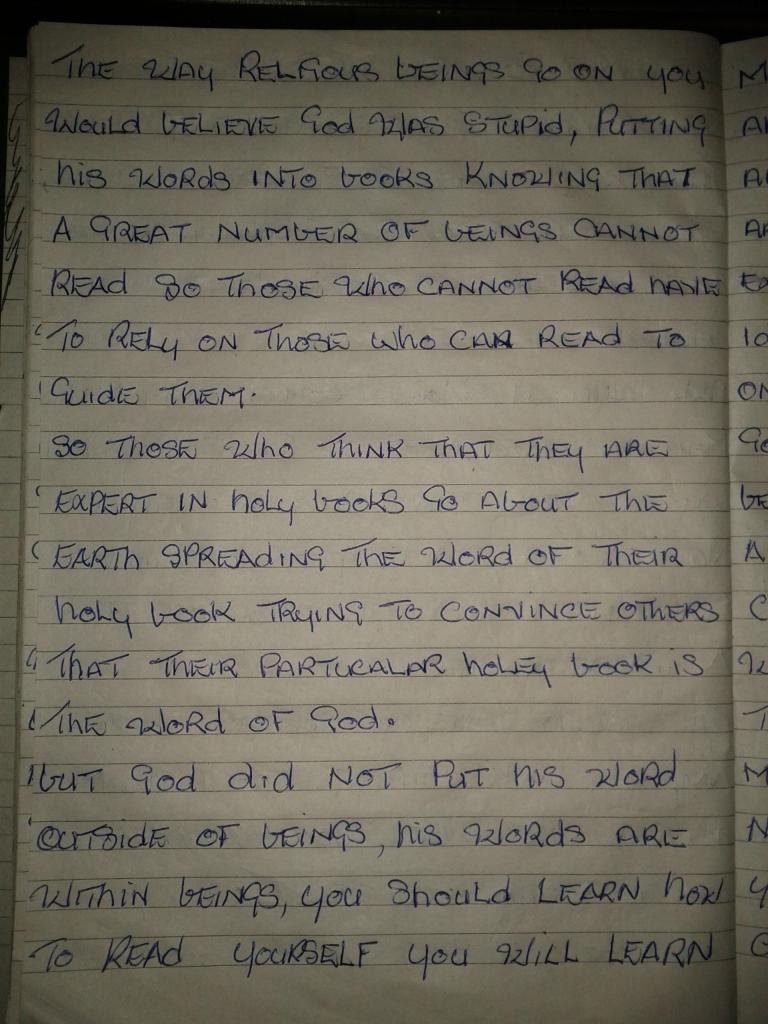 THE WAY RELGIOUS bEINGS GO ON yOU
WOuld bELIEVE God WAS STUPId, PUTTING
his WORdS INTO bOOKS KNOWING THAT
A GREAT NUMbER OF bEINGS CANNOT
REAd SO ThOSE Who CANNOT REAd hAVE
TO RELy ON ThOSE Who CAN REAd TO
GuidE ThEM.
SO ThOSE Who THINK THAT ThEy ARE
EXPERT IN hOLy bOOKS GO AbOUT ThE
EARTh SPREAdING ThE WORd OF ThEIR
hOLy bOOK TRyING TO CONVINCE OThERS
ThAT ThEIR PARTUCALAR hOLEy bOOK IS
ThE WORd OF God.
bUT God did NOT PUT hIS WORd
OUTSidE OF bEINGS, hiS WORdS ARE
WIThiN bEINGS, yOU Should LEARN hOW
TO REAd yOURSELF yOU WILL LEARN